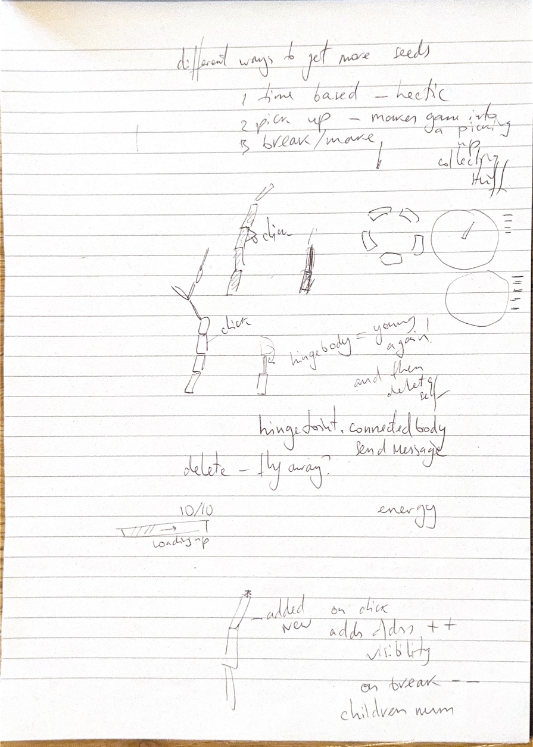 different ways to get more seeds
1 time based – hectic
2 pick up – makes gam into a picking up collecting stuff
3 break/make
click
click
hingebody = young again!
and then delete self
hingeJoint.connectedbody
send message
delete – fly away?
10/10
energy
loading up
added on click
new adds ++
visibility
on break --
children num